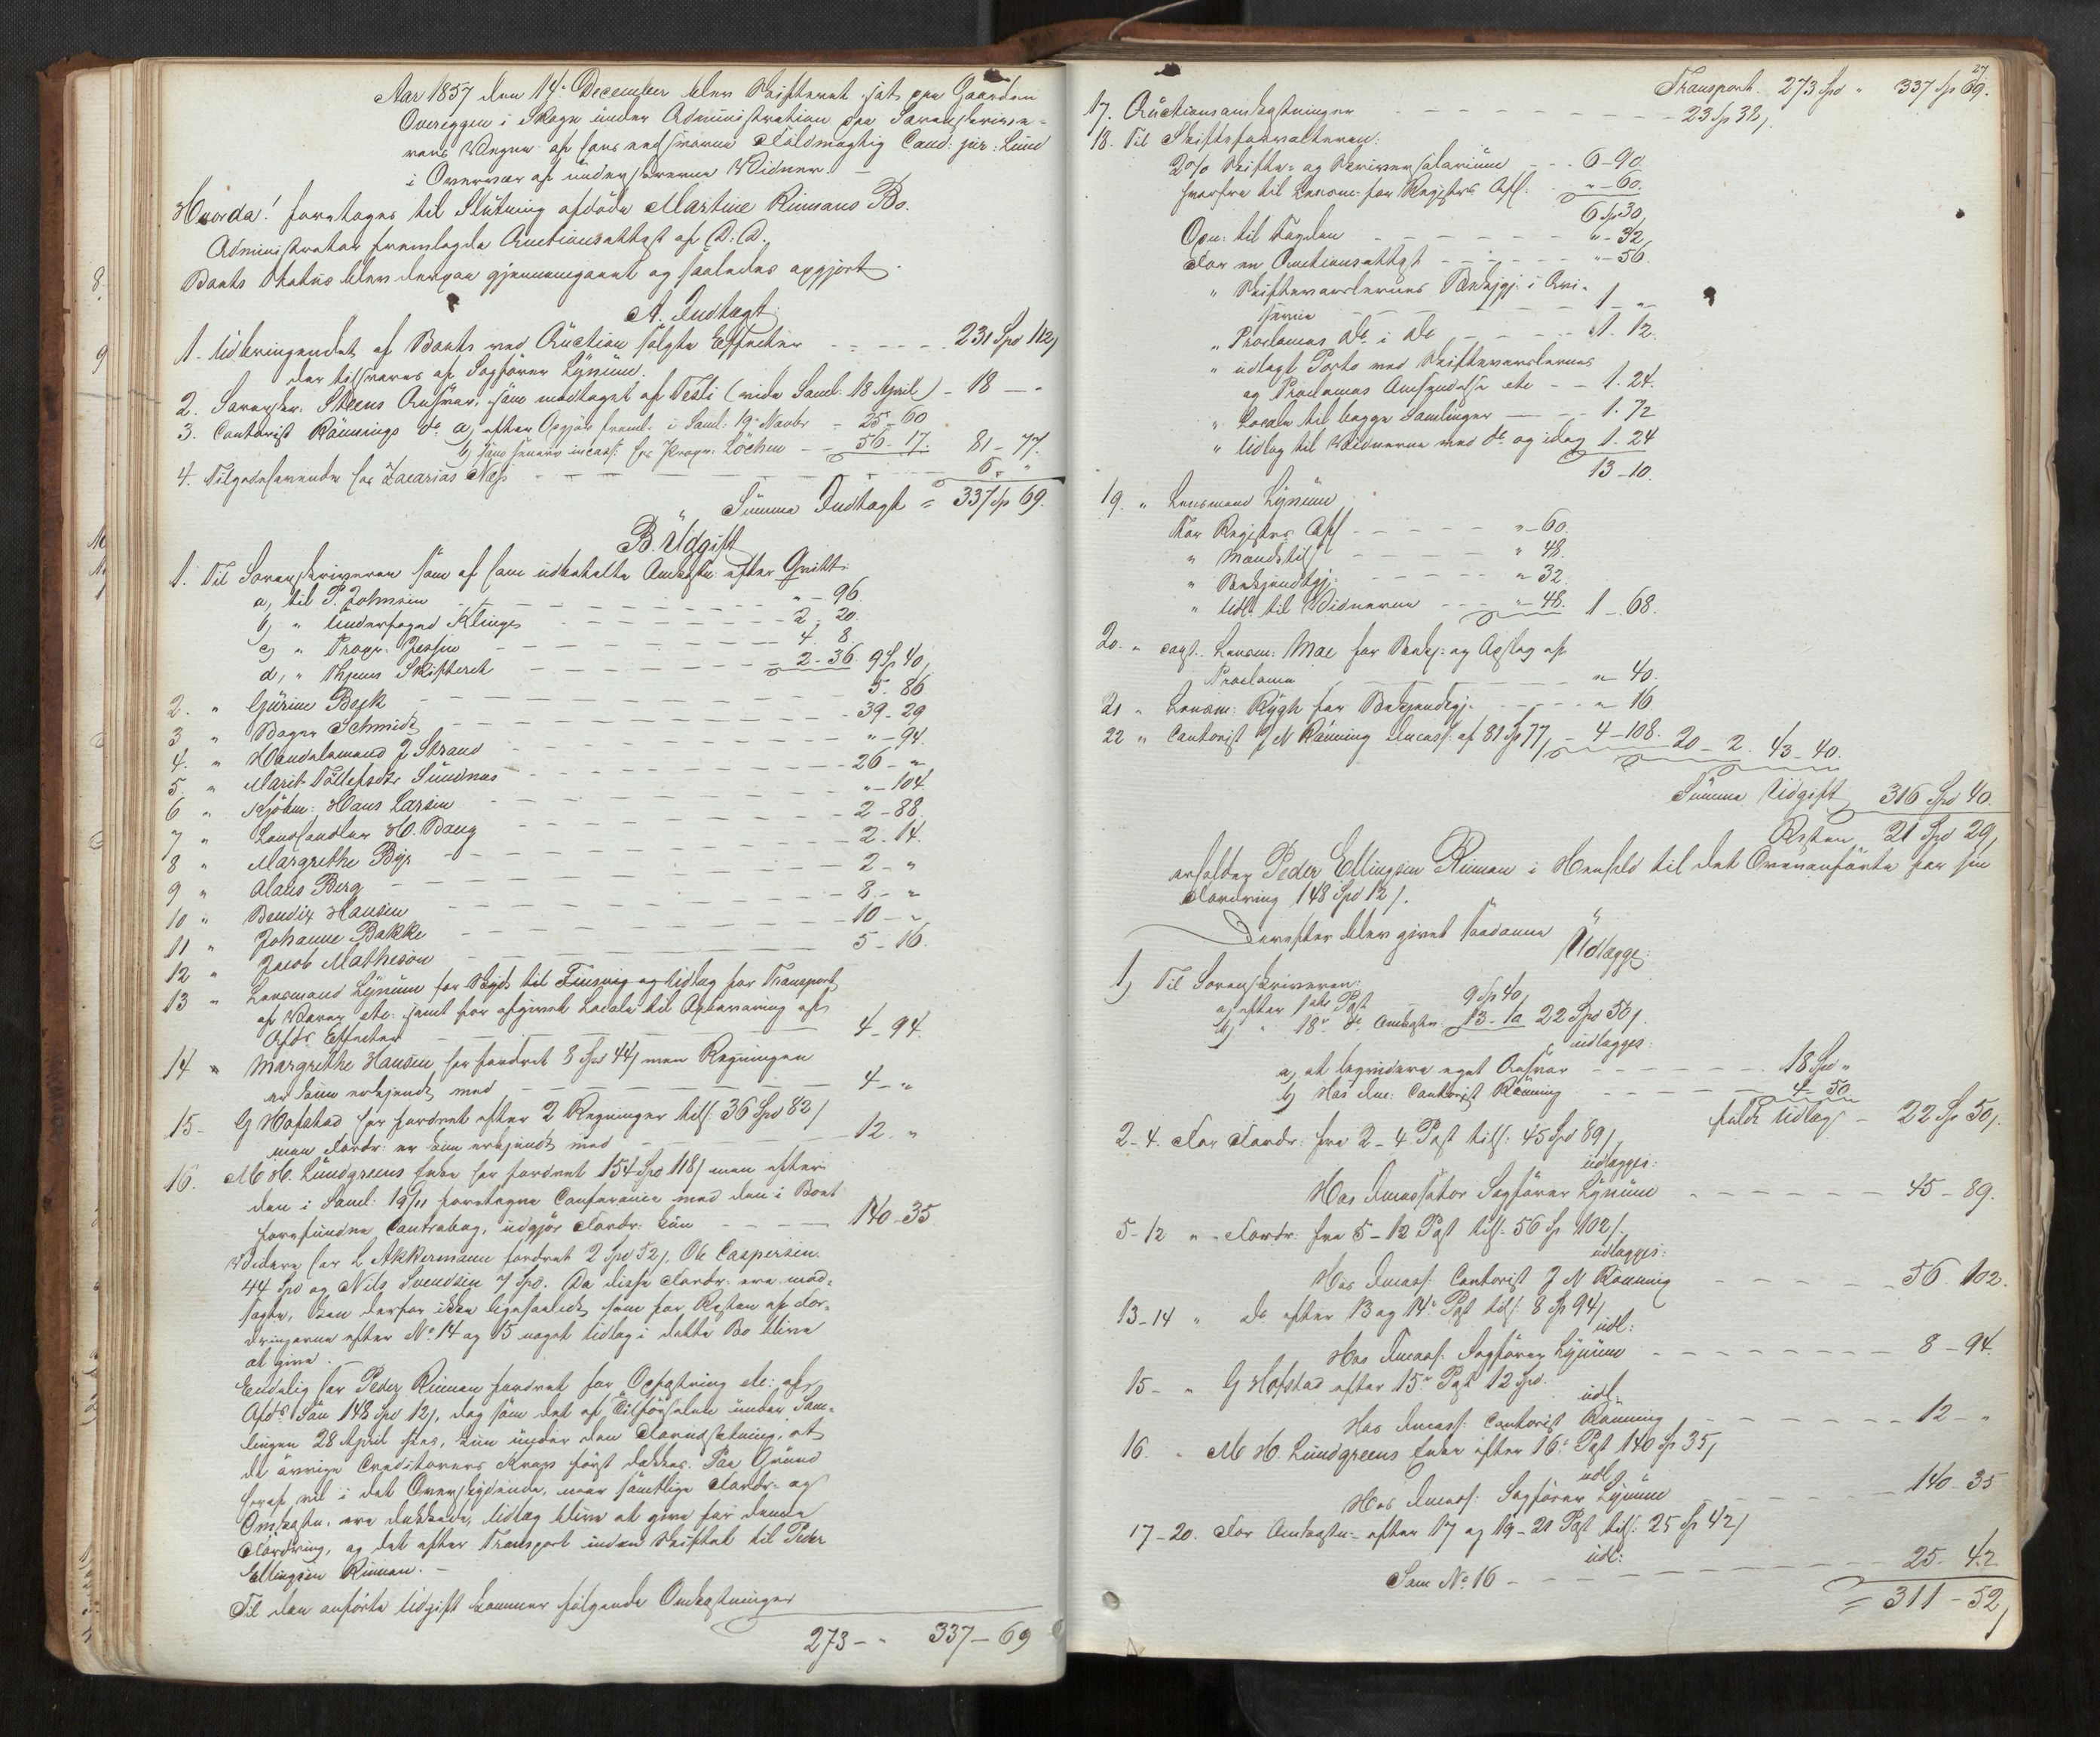 Aar 1857 den 14de December blev Skifteret sat paa Gaarden
Overeggen i Skogn under Administration paa Sorenskrive-
rens Vegne af hans edsvorne Fuldmægtig Cand: jur: Lund
i Overvær af underskrevne Vidner. —
Hvorda! foretoges til Slutning afdøde Martine Rinnans Bo.
Administrator fremlagde Auctionsattest af D: D.
Boets Status blev derpaa gjennemgaaet og saaledes opgjort.
A. Indtægt.
1. Udbringendet af Boets ved Auction solgte Effecter - - - - 231 Spd 112/
der tilsvares af Sagfører Lynum.
2. Sorenskr. Steens Ansvar, som modtaget af Testi (vide Saml: 18 April) - 18 — "
3. Contorist Rønnings do a, efter Opgjør freml. i Saml: 19 Novbr - 25-60
b, som senere incass: hos Propr: Löchen - - 56-17. 81-77.
4. Tilgodehavende hos Zacarias Næss - - - - 6. "
Summa Indtægt = 337 Sp 69.
B. Udgift
1. Til Sorenskriveren som af ham udbetalte Omkostn: efter Qvitt:
a, til P. Johnsen - - - - " - 96.
b, " Underfoged Klinges - - - - 2. 20.
c, " Propr. Jessen - - - - 4. 8.
d, " Thjems Skifteret - - - - 2-36. 9 Sp 40,
2. " Gurine Beck - - - - 5. 86
3 " Bager Schmidt - - - - 39-29
4. " Handelsmand J Strand - - - - " - 94.
5. " Marit Tollefsdtr Sundnæs - - - - 26 - "
6 " Kjøbm: Hans Larsen - - - - " - 104
7 " Landhandler H. Daug - - - - 2-88.
8 " Margrethe Bye - - - - 2-14.
9 " Claus Berg - - - - 2 - "
10 " Bendix Hansen - - - - 8 - "
11 " Johanne Bakke - - - - 10 - "
12 " Jacob Matheson - - - - 5-16.
13 " Lensmand Lynum for Skyds til Finsvig og Udlæg for Transport
af Varer etc: samt for afgivet Locale til Opbevaring af
Afds Effecter - - - - 4-94.
14 " Margrethe Hansen har fordret 8 Spd 44/ men Regningen
er kun erkjendt med - - - - 4 - "
15- G Hofstad har fordret efter 2 Regninger tils: 36 Spd 82/
men Fordr: er kun erkjendt med - - - - 12. "
16. M H. Lundgreens Enke har fordret 154 Spd 118/ men efter
den i Saml: 19/11 foretagne Conferance med den i Boet
forefundne Contrabog, udgjør Fordr: kun - - - - 140-35.
Videre har L Akkermann fordret 2 Spd 52/, Ole Caspersen.
44 Spd og Nils Svendsen 7 Spd. Da disse Fordr: ere mod-
sagte, kan derfor ikke ligesaalidt som for Resten af For-
dringerne efter No 14 og 15 noget Udlæg i dette Bo blive
at give. —
Endelig har Peder Rinnan fordret for Opfostring etc: af
Afds Søn 148 Spd 12/, dog som det af Tilførselen under Sam-
lingen 28 April sees, kun under den Forudsætning, at
de øvrige Creditorers Krav først dækkes. Paa Grund
heraf vil i det Overskydende, naar samtlige Fordr: og
Omkostn. ere dækkede, Udlæg blive at give for denne
Fordring, og det efter Transport inden Skiftet til Peder
Ellingsen Rinnan. —
Til den anførte Udgift kommer følgende Omkostninger
273 - " 337-69
27
Transport. 273 Spd " 337 Sp 69.
17. Auctionsomkostninger - - - - 23 Sp 32/.
18. Til Skifteforvalteren:
2 % Skifte- og Skriversalarium - - - 6-90.
herfra til Lensm: for Registrs Afh: " - 60.
6 Sp 30,
Opn: til Fogden - - - - " - 32,
For en Auctionsattest - - - - " - 56.
" Skiftevarslernes Bekjgj: i Avi-
serne - - - - 1 - "
" Proclamas do i do - - - - 1. 12.
" udlagt Porto med Skiftevarslernes
og Proclamas Anskyndelse etc - - 1. 24.
" Locale til begge Samlinger - - - 1. 72
" Udlæg til Vidnerne ved do og idag 1. 24
13-10.
19. " Lensmand Lynum
For Registrs Afh - - - - " - 60.
" Mændstil - - - - " 48.
" Bekjendtgj: - - - - " 32.
" Udl: til Vidnerne - - - " 48. 1-68.
20. " const. Lensm: Moe for Bekj: og Opslag af
Proclama - - - - " - 40.
21 " Lensm: Rygh for Bekjendtgj: - - - - " 16.
22 " Contorist J N Rønning Incass: af 81 Sp 77/ - 4-108. 20-2. 43-40.
Summa Udgift 316 Spd 40.
Resten 21 Spd 29,
erholder Peder Ellingsen Rinnan i Henhold til det Ovenanførte for sin
Fordring 148 Spd 12/.
Derefter blev givet saadanne
Udlægge:
1, Til Sorenskriveren:
a, efter 1ste Post 9 Sp 40,
b, " 18de do Omkostn: 13-10 22 Spd 50/.
udlægges:
a, at liqvidere eget Ansvar - - - - 18 Spd "
b, Hos Inc: Contorist Rønning - - - - 4-50
fuldt Udlæg - 22 Sp 50/.
2-4. For Fordr: fra 2-4 Post tils: 45 Spd 89/,
udlægges:
Hos Incassator Sagfører Lynum - - - - 45-89.
5-12 " Fordr: fra 5-12 Post tils: 56 Sp 102/.
udlægges:
Hos Incass: Contorist J N Rønning - - - - 56. 102.
13-14 " Do efter 13 og 14de Post tils: 8 Sp 94/
udl:
Hos Incass: Sagfører Lynum - - - - 8-94.
15- " G Hofstad efter 15de Post 12 Spd.
udl:
Hos Incass: Contorist Rønning - - - - 12 - "
16. " M H. Lundgreens Enke efter 16de Post 140 Sp 35/
udl:
Hos Incass: Sagfører Lynum - - - - 140-35
17-20. For Omkostn: efter 17 og 19-21 Post tils: 25 Sp 42/
udl:
Som No 16 - - - - 25-42.
= 311-52/